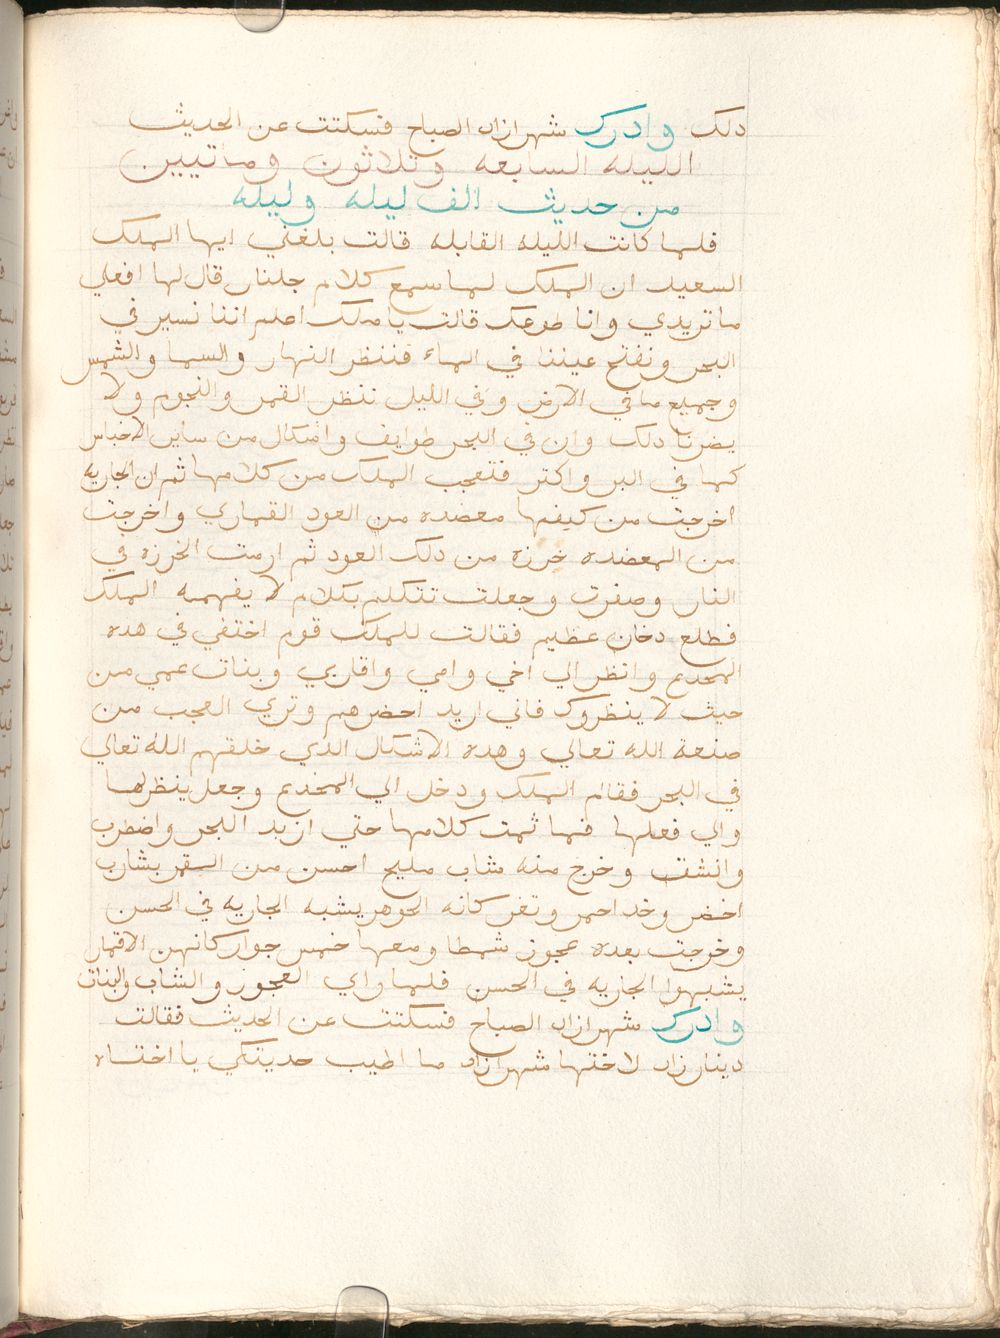 دلك وادرك شهرازاد الصباح فسكتت عن الحديث
الليله السابعه وتلاثون وماتيين
من حديث الف ليله وليله
فلما كانت الليله القابله قالت بلغني ايها الملك
السعيد ان الملك لما سمع كلام جلنار قال لها افعلي
ما تريدي وانا طوعك قالت يا ملك اعلم اننا نسير في
البحر ونفتح عيننا في الماء فننظر النهار والسما والشمس
وجميع ما في الارض وفي الليل ننظر القمر والنجوم ولا
يضرنا دلك وان في البحر طوايف واشكال من ساير الاجناس
كما في البر واكتر فتعجب الملك من كلامها ثم ان الجاريه
اخرجت من كيفها معضده من العود القماري واخرجت
من المعضده خرزه من دلك العود ثم ارمت الخرزه في
النار وصفرت وجعلت تتكلم بكلام لا يفهمه الملك
فطلع دخان عظيم فقالت للملك قوم اختفي في هده
المخدع وانظر الي اخي وامي واقاربي وبنات عمي من
حيث لا ينظروك فاني اريد احضرهم وتري العجب من
صنعة الله تعالي وهده الاشكال الذي خلقهم الله تعالي
في البحر فقام الملك ودخل الي المخدع وجعل ينظر لها
والي فعلها فما ثمت كلامها حتي ازبد البحر واضطرب
وانشق وخرج منه شاب مليح احسن من القمر بشارب
اخضر وخد احمر وتغر كانه الجوهر يشبه الجاريه في الحسن
وخرجت بعده عجوز شمطا ومعها خمس جوار كانهن الاقمار
يشبهوا الجاريه في الحسن فلما راي العجوز والشاب والبنات
وادرك شهرازاد الصباح فسكتت عن الحديث فقالت
دينارزاد لاختها شهرازاد ما اطيب حديتكي يا اختاه